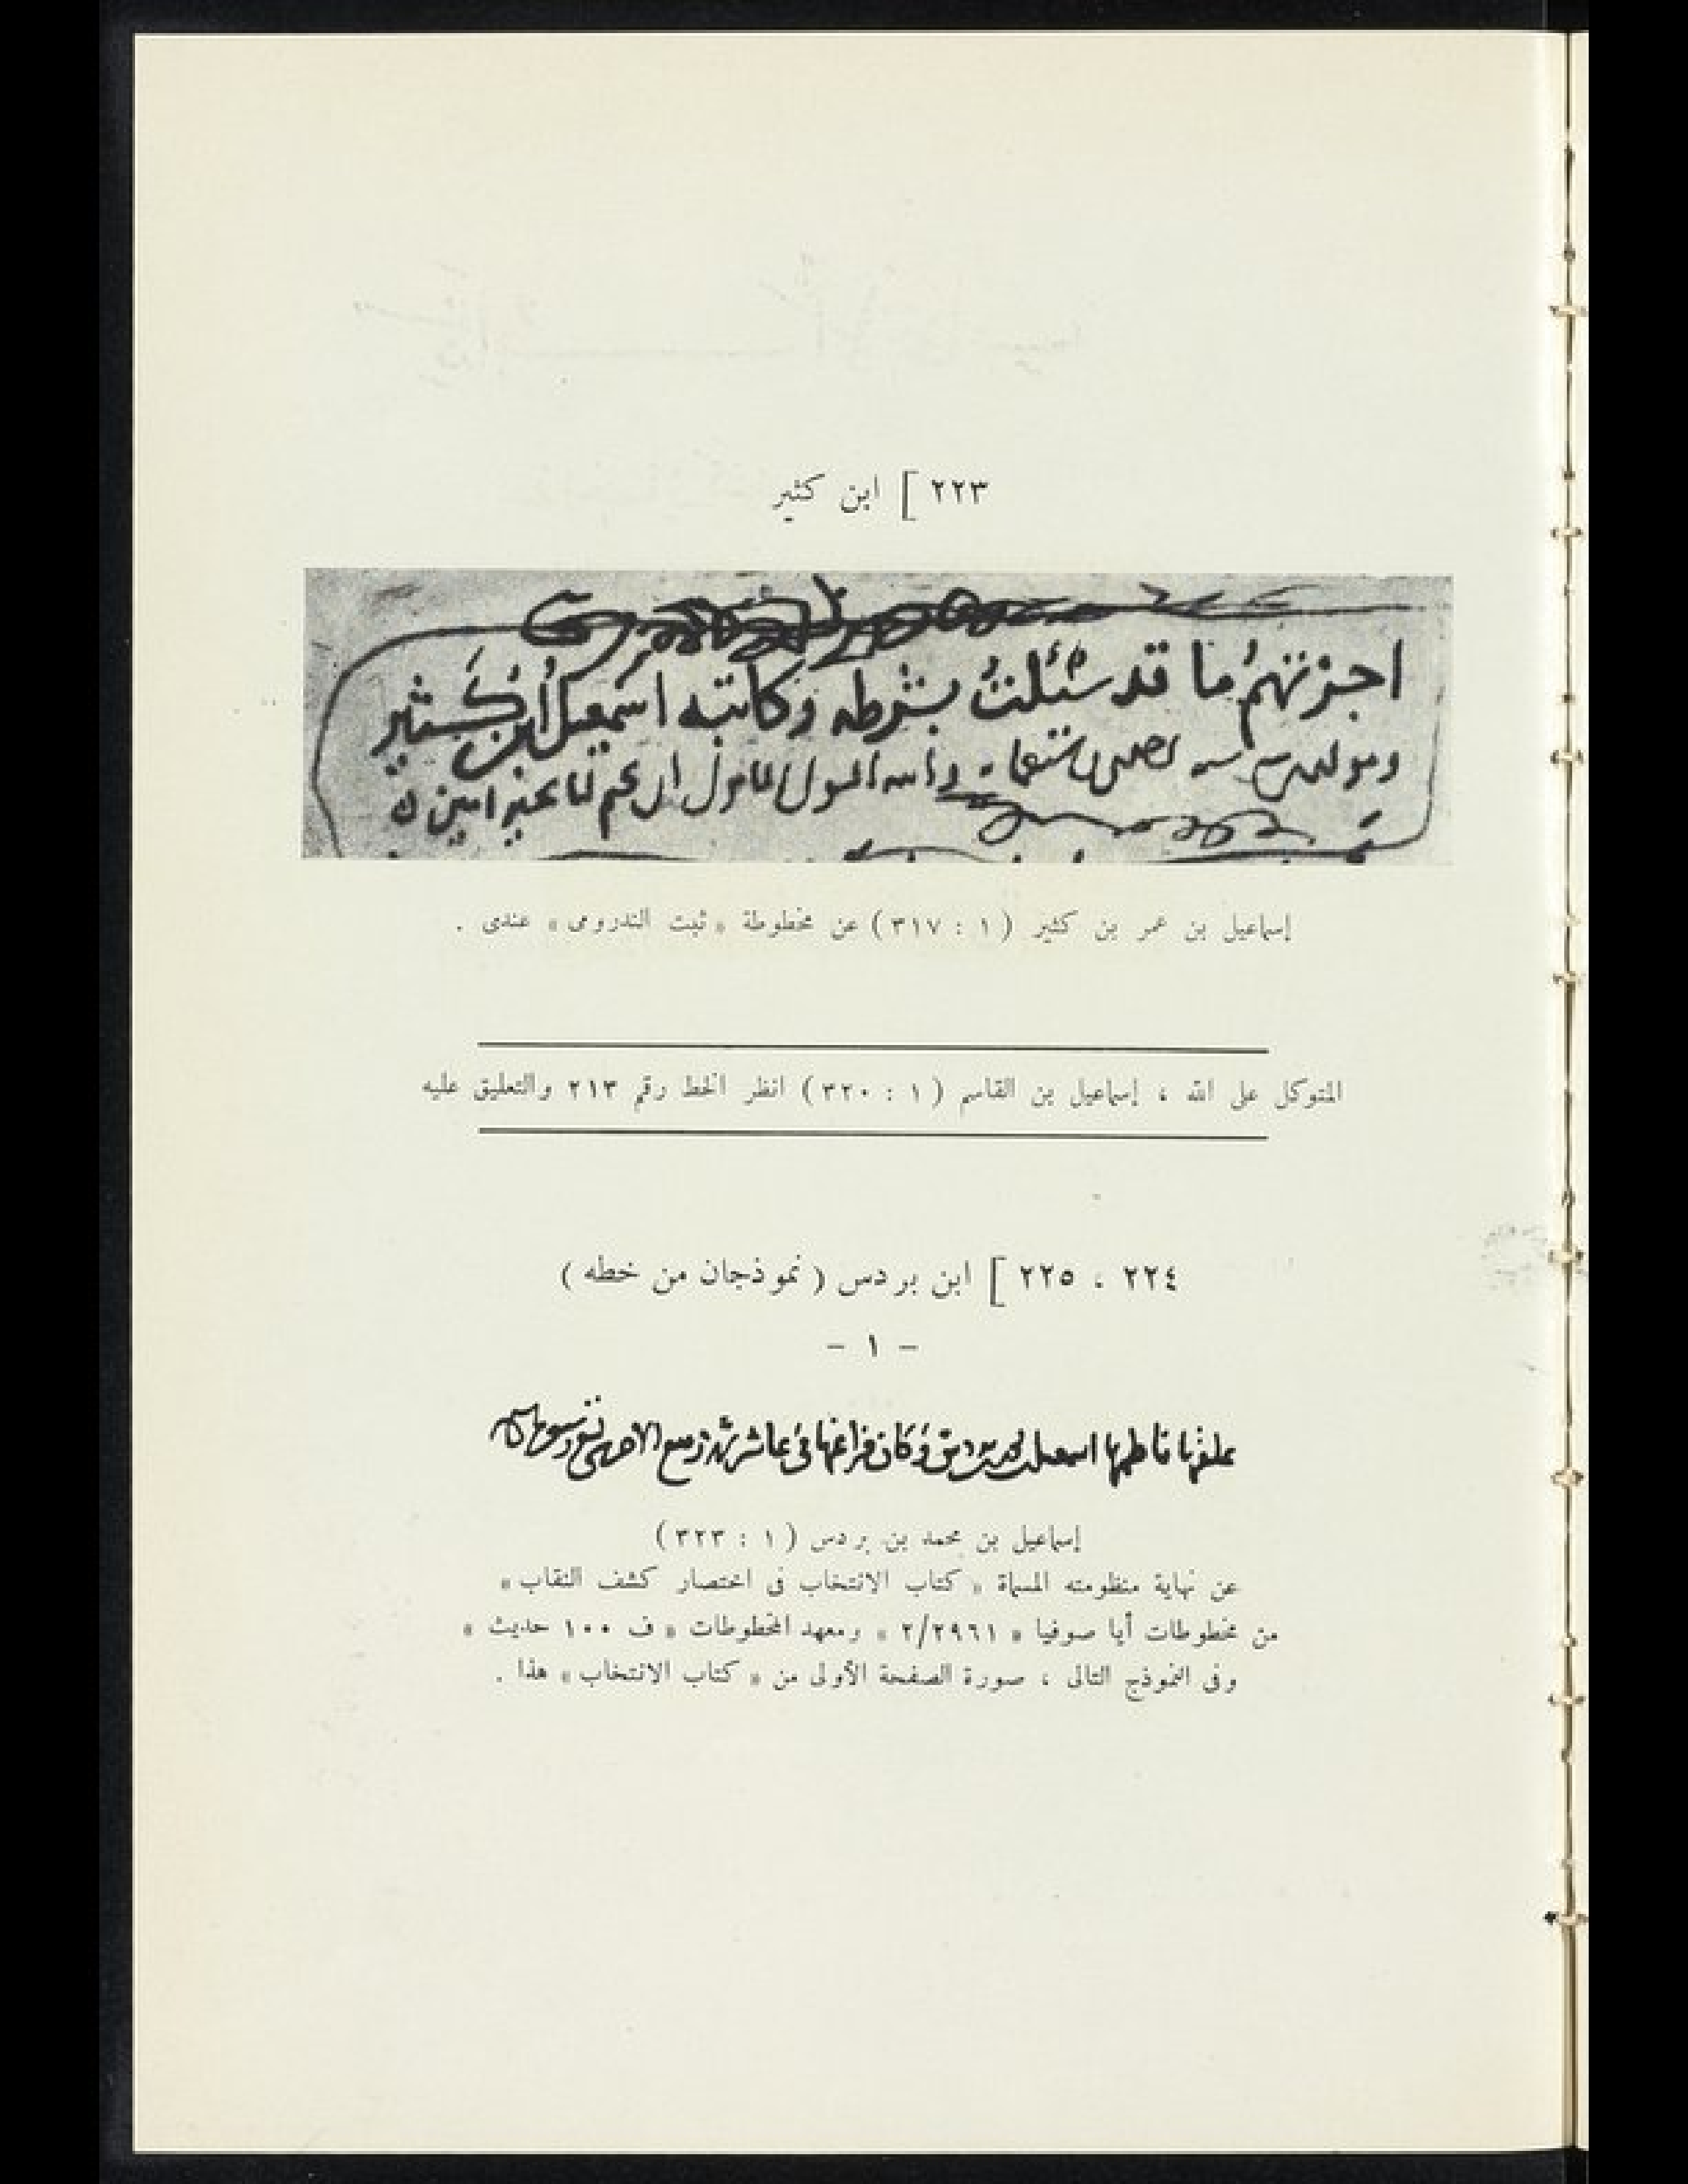 ٢٢٣ ] ابن كثير
اجزتهم ما قد سئلت بشرطه وكاتبه اسمعيل ابن كثير
امين
إسماعيل بن عمر بن كثير ( ١ : ٣١٧ ) عن مخطوطة « ثبت الندرومى » عندى .
المتوكل على الله ، إسماعيل بن القاسم ( ١ : ٣٢٠ ) انظر الخط رقم ٢١٣ والتعليق عليه
٢٢٤ ، ٢٢٥ ] ابن بردس ( نموذجان من خطه )
- ١ -
علقها ناظمها اسمعيل بن بردس وكان فراغها فى عاشر شهر ربيع الاخر
إسماعيل بن محمد بن بردس ( ١ : ٣٢٣ )
عن نهاية منظومته المسماة « كتاب الانتخاب فى اختصار كشف النقاب »
من مخطوطات أيا صوفيا « ٢/٢٩٦١ » ومعهد المخطوطات « ف ١٠٠ حديث »
وفى النموذج التالى ، صورة الصفحة الأولى من « كتاب الانتخاب » هذا .